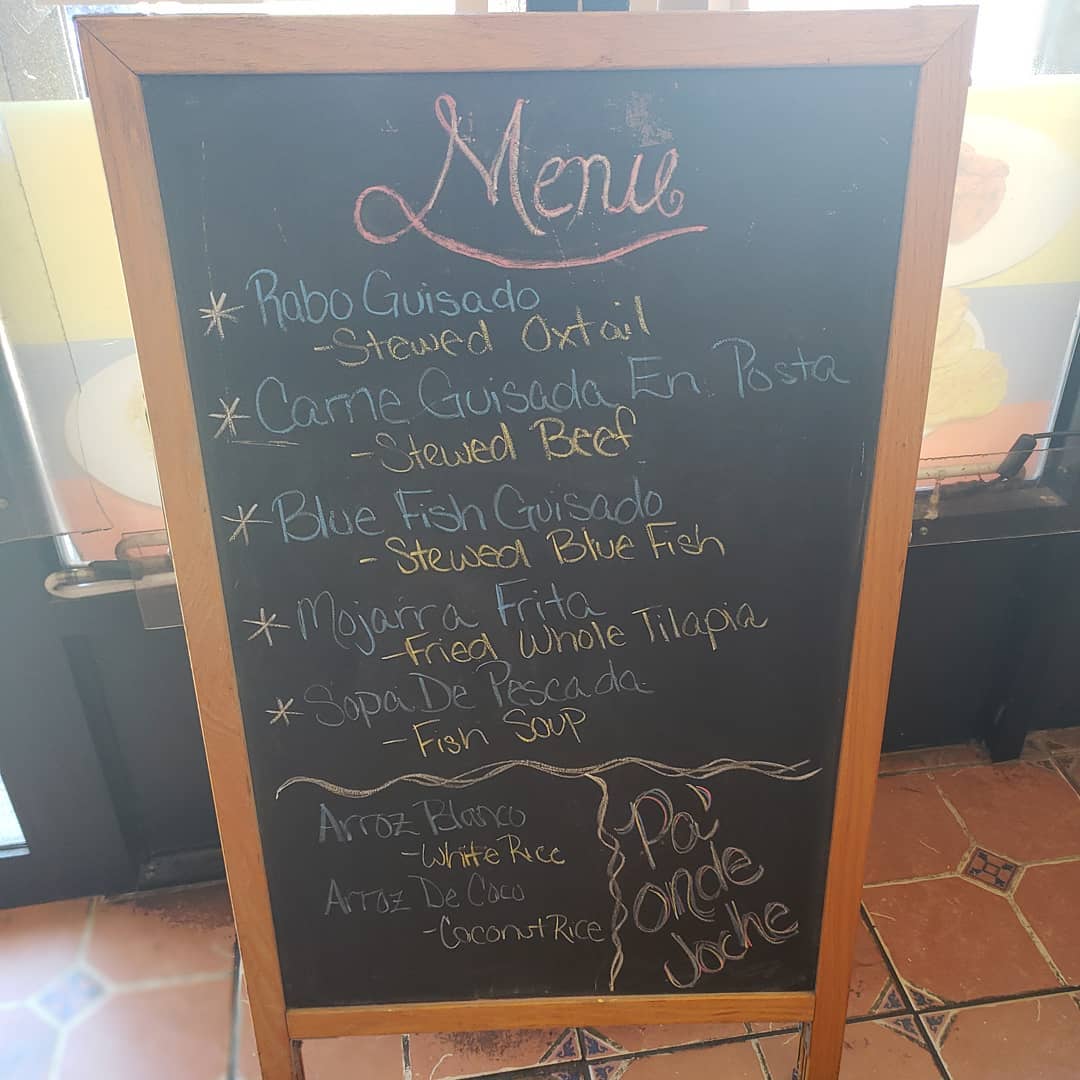 Menu
* Rabo Guisado
- Stewed Oxtail
* Carne Guisada En Posta
- Stewed Beef
* Blue Fish Guisado
- Stewed Blue Fish
* Mojarra Frita
- Fried Whole Tilapia
* Sopa De Pescada
- Fish Soup
Arroz Blanco
- White Rice
Arroz De Coco
- Coconut Rice
Pa'
onde
Joche